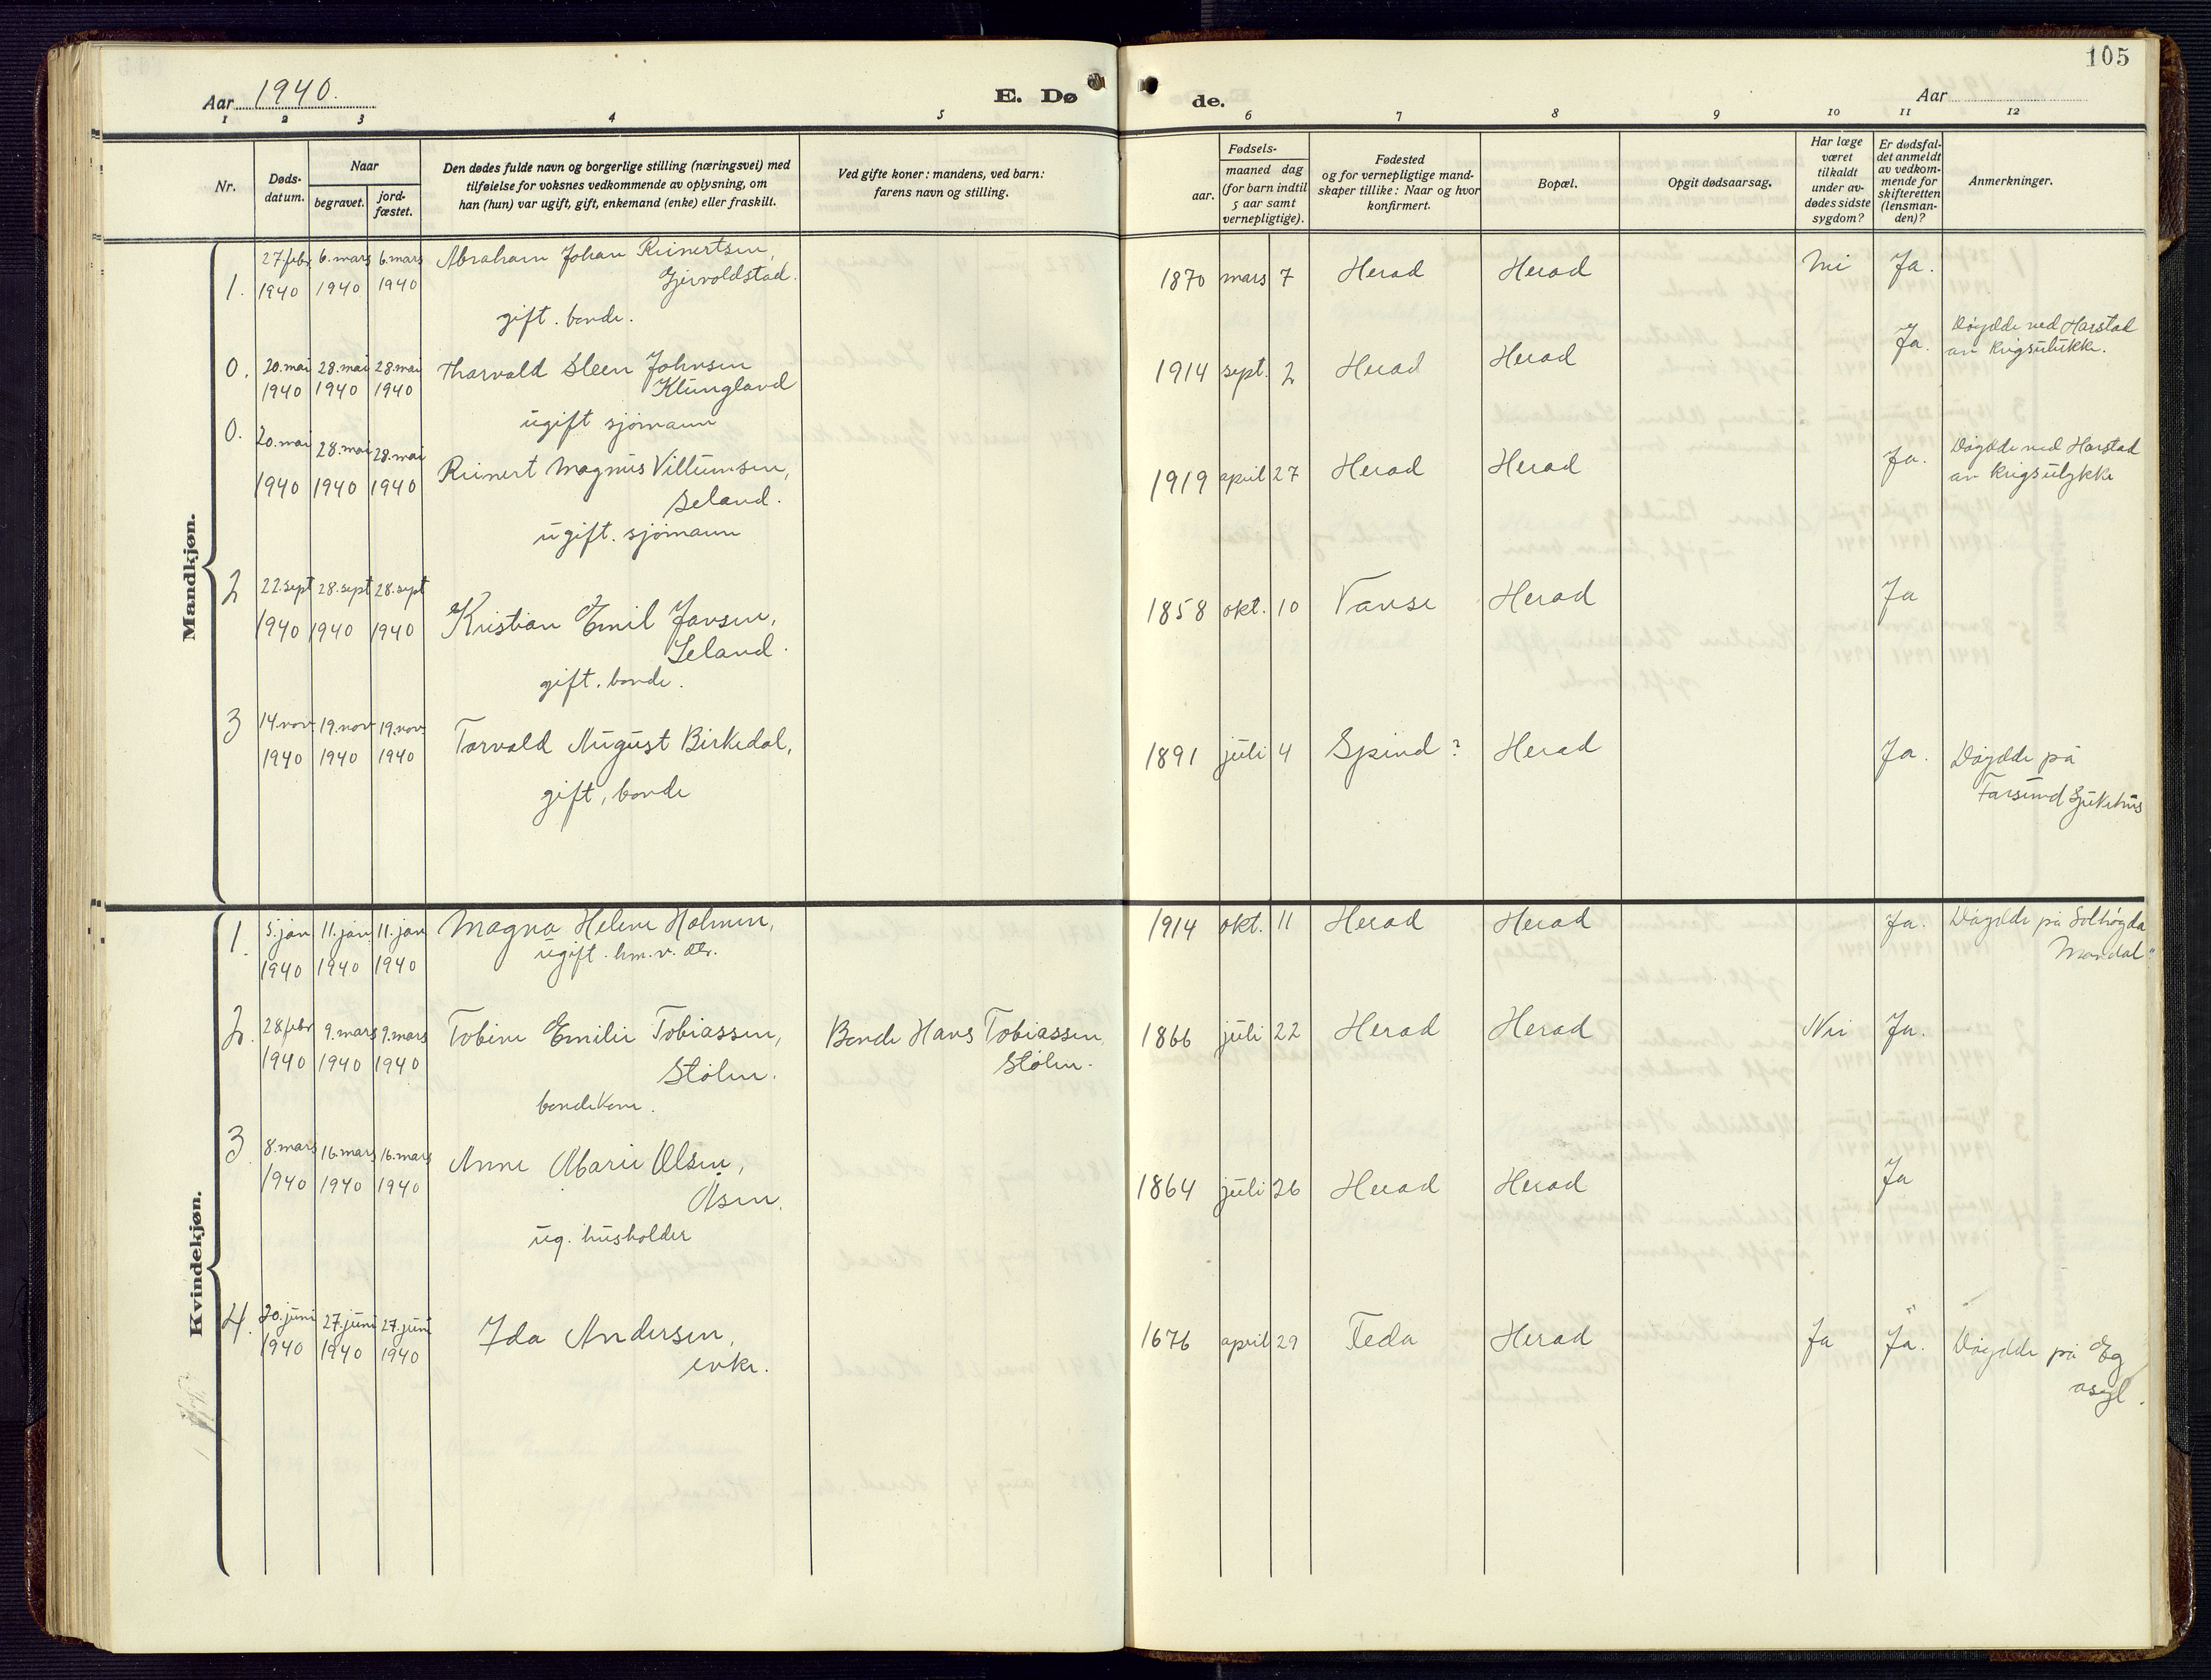 105
Aar 1940.
E. Dø
de.
Aar
1 2 3 4 5 6 7 8 9 10 11 12
Nr.
Døds-
datum.
Naar
begravet.
jord-
fæstet.
Den dødes fulde navn og borgerlige stilling (næringsvei) med
tilføielse for voksnes vedkommende av oplysning, om
han (hun) var ugift, gift, enkemand (enke) eller fraskilt.
Ved gifte koner: mandens, ved barn:
farens navn og stilling.
Fødsels-
aar.
maaned dag
(for barn indtil
5 aar samt
vernepligtige).
Fødested
og for vernepligtige mand-
skaper tillike: Naar og hvor
konfirmert.
Bopæl.
Opgit dødsaarsag.
Har læge
været
tilkaldt
under av-
dødes sidste
sygdom?
Er dødsfal-
det anmeldt
av vedkom-
mende for
skifteretten
(lensman-
den)?
Anmerkninger.
Mandkjøn.
1. 27. febr. 6. mars 6. mars Abraham Johan Reinertsen,
1940 1940 1940 Gjervoldstad.
gift. bonde.
1870 mars 7 Herad Herad Nei Ja.
0. 20. mai 28. mai 28. mai Thorvald Steen Johnsen
1940 1940 1940 Klungland
ugift sjømann
1914 sept. 2 Herad Herad Ja. Døydde ved Harstad
av krigsulukke.
0. 20. mai 28. mai 28. mai
1940 1940 1940 Reinert Magnus Villumsen,
Seland.
ugift. sjømann
1919 april 27 Herad Herad Ja. Døydde ved Harstad
av krigsulykke
2 22. sept 28. sept 28. sept
1940 1940 1940 Kristian Emil Jansen,
Seland.
gift. bonde.
1858 okt. 10 Vanse Herad Ja
3 14. nov. 19. nov 19. nov.
1940 1940 1940 Torvald August Birkedal,
gift, bonde
1891 juli 4 Spind? Herad Ja. Døydde på
Farsund Sjukehus
Kvindekjøn.
1. 5. jan 11. jan. 11. jan Magna Helene Holmen,
1940 1940 1940 ugift. hm. v. dtr.
1914 okt. 11 Herad Herad Ja. Døydde på Solhøgda
Mandal"
2. 28. febr 9. mars 9. mars Tobine Emilie Tobiassen, Bonde Hans Tobiassen
1940 1940 1940 Stølen. Stølen.
bondekone.
1866 juli 22 Herad Herad Nei Ja.
3. 8. mars 16. mars 16. mars Anne Marie Olsen,
1940 1940 1940 Åsen.
ug. husholder
1864 juli 26 Herad Herad Ja
4. 20. juni 27. juni 27. juni Ida Andersen,
1940 1940 1940 enke.
1676 april 29 Feda Herad Ja Ja. Døydde på Eg
asyl.